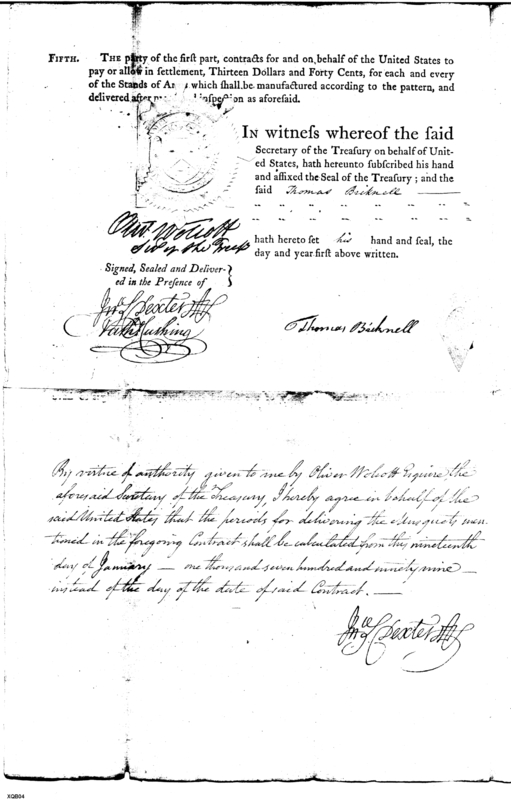 FIFTH. THE party of the firſt part, contracts for and on behalf of the United States to
pay or allow in ſettlement, Thirteen Dollars and Forty Cents, for each and every
of the Stands of Arms which ſhall be manufactured according to the pattern, and
delivered after inſpection as aforeſaid.
IN witneſs whereof the ſaid
Secretary of the Treaſury on behalf of Unit-
ed States, hath hereunto ſubſcribed his hand
and affixed the Seal of the Treaſury; and the
ſaid Thomas Bicknell
Olivr Wolcott
Sec of the Treasy
hath hereto ſet his hand and ſeal, the
day and year firſt above written.
Signed, Sealed and Deliver-
ed in the Preſence of
Dexter
Cushing
Thomas Bicknell
By virtue of authority given to me by Oliver Wolcott Esquire, the
aforesaid Secretary of the Treasury, I hereby agree in behalf of the
said United States that the periods for delivering the Musquets men-
tioned in the foregoing Contract shall be calculated from this nineteenth
day of January — one thousand seven hundred and ninety nine —
instead of the day of the date of said Contract. —
Dexter
XQB04